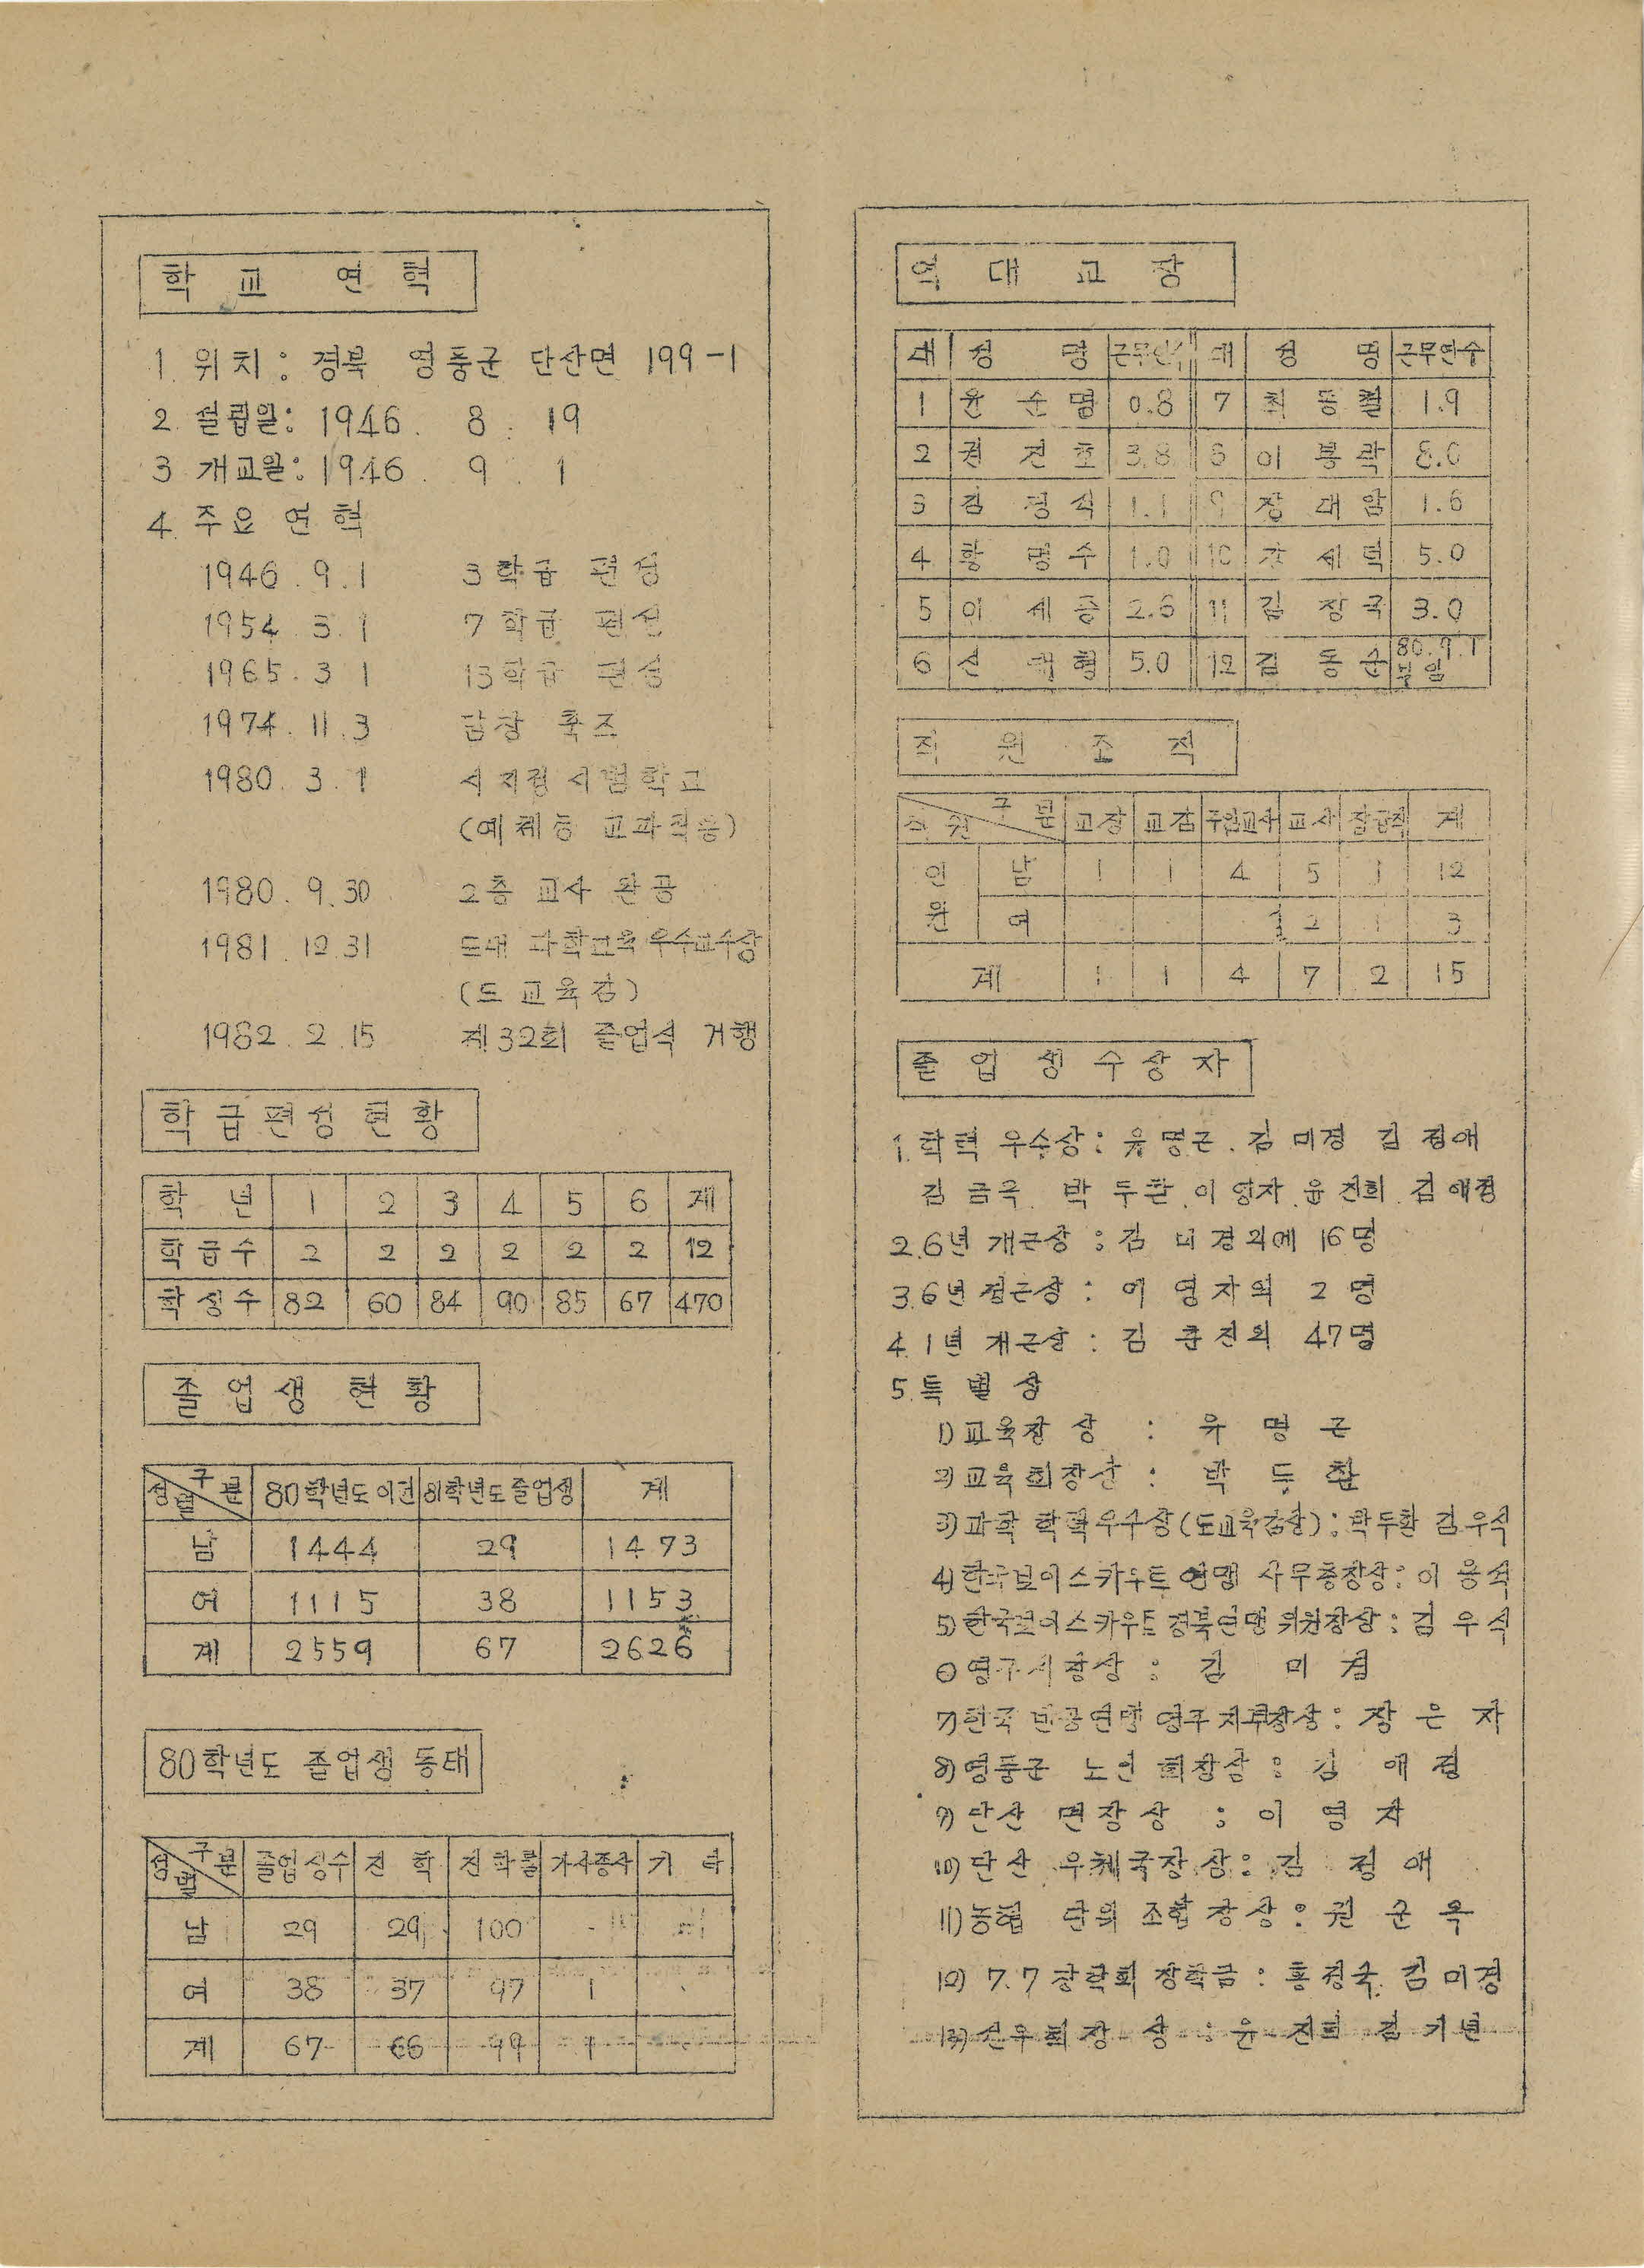 학교 연혁
1. 위치 : 경북 영풍군 단산면 199-1
2. 설립일 : 1946. 8. 19
3. 개교일 : 1946. 9. 1
4. 주요 연혁
1946. 9. 1 3학급 편성
1954. 3. 1 7학급 편성
1965. 3. 1 13학급 편성
1974. 11. 3 담장 축조
1980. 3. 1 시지정 시범학교
(예체능 교과적응)
1980. 9. 30 2층 교사 완공
1981. 12. 31 도내 과학교육 우수교수상
(도 교육감)
1982. 2. 15 제32회 졸업식 거행
학급편성 현황
학 년 1 2 3 4 5 6 계
학급수 2 2 2 2 2 2 12
학생수 82 60 84 90 85 67 470
졸업생 현황
성별 구분 80학년도 이전 81학년도 졸업생 계
남 1444 29 1473
여 1115 38 1153
계 2559 67 2626
80학년도 졸업생 동태
성별 구분 졸업생수 진 학 진학률 가사종사 기 타
남 29 29 100
여 38 37 97 1
계 67 66 99 1
역대교장
대 성 명 근무연수 대 성 명 근무연수
1 윤순명 0.8 7 최동철 1.9
2 권전호 3.8 8 이봉락 8.0
3 김정식 1.1 9 장대암 1.6
4 황명수 1.0 10 세덕 5.0
5 이세종 2.6 11 김장국 3.0
6 신태형 5.0 12 김동순 80.9.1 부임
직원조직
직원 구분 교장 교감 주임교사 교사 잡급직 계
인원 남 1 1 4 5 1 12
여 2 1 3
계 1 1 4 7 2 15
졸업생수상자
1. 학력 우수상 : 유명근. 김미경 김정애
김금국. 박두환. 이영자. 윤진희. 김애정
2. 6년 개근상 : 김미경외에 16명
3. 6년 정근상 : 이영자외 2명
4. 1년 개근상 : 김춘진외 47명
5. 특별상
1) 교육장 상 : 유명근
2) 교육회장상 : 박두환
3) 과학 학력우수상(도교육감상) : 박두환 김우식
4) 한국보이스카우트 연맹 사무총장상 : 이용석
5) 한국보이스카우트 경북연맹 위원장상 : 김우식
6) 영주시장상 : 김미경
7) 한국 반공연맹 영주지부장상 : 장은자
8) 영풍군 노인회장상 : 김애정
9) 단산 면장상 : 이영자
10) 단산 우체국장상 : 김정애
11) 농협 단위 조합장상 : 권순옥
12) 7.7 장학회 장학금 : 홍정국. 김미경
13) 선우회장 상 : 윤진희 김기년